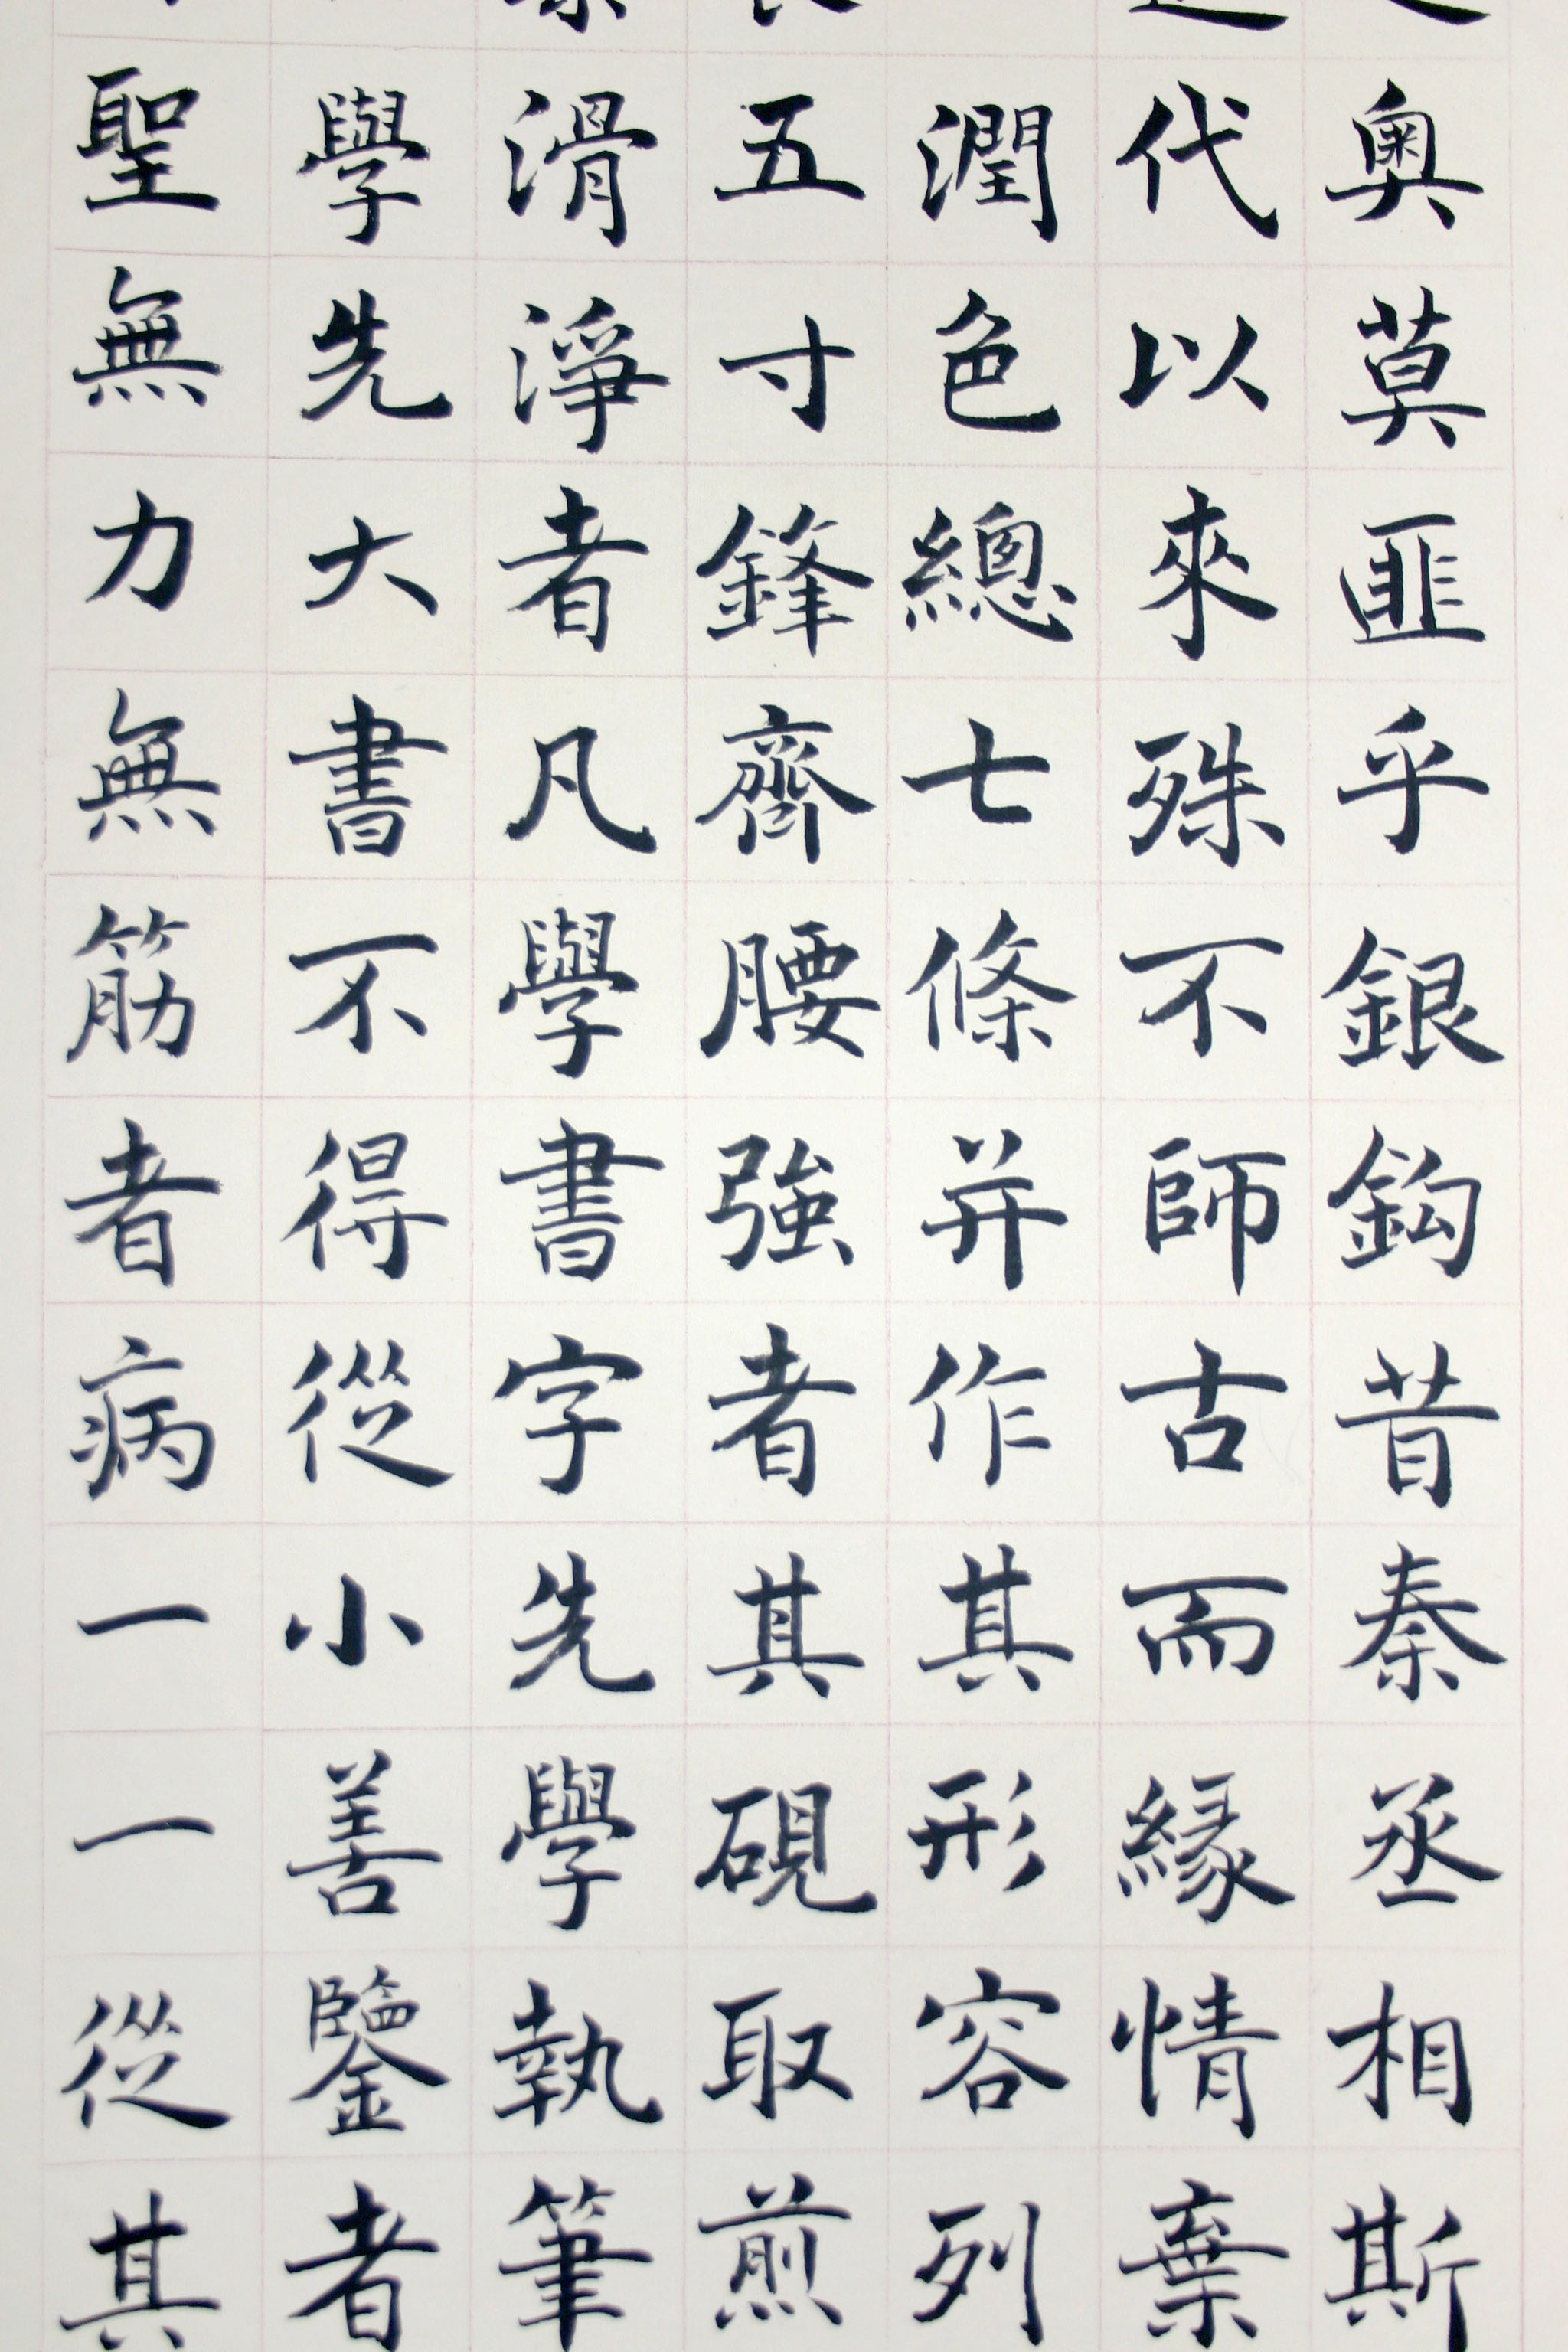 奧莫匪乎銀鈎昔秦丞相斯
代以來殊不師古而緣情棄
潤色總七條并作其形容列
五寸鋒齊腰強者其硯取煎
滑淨者凡學書字先學執筆
學先大書不得從小善鑒者
聖無力無筋者病一一從其